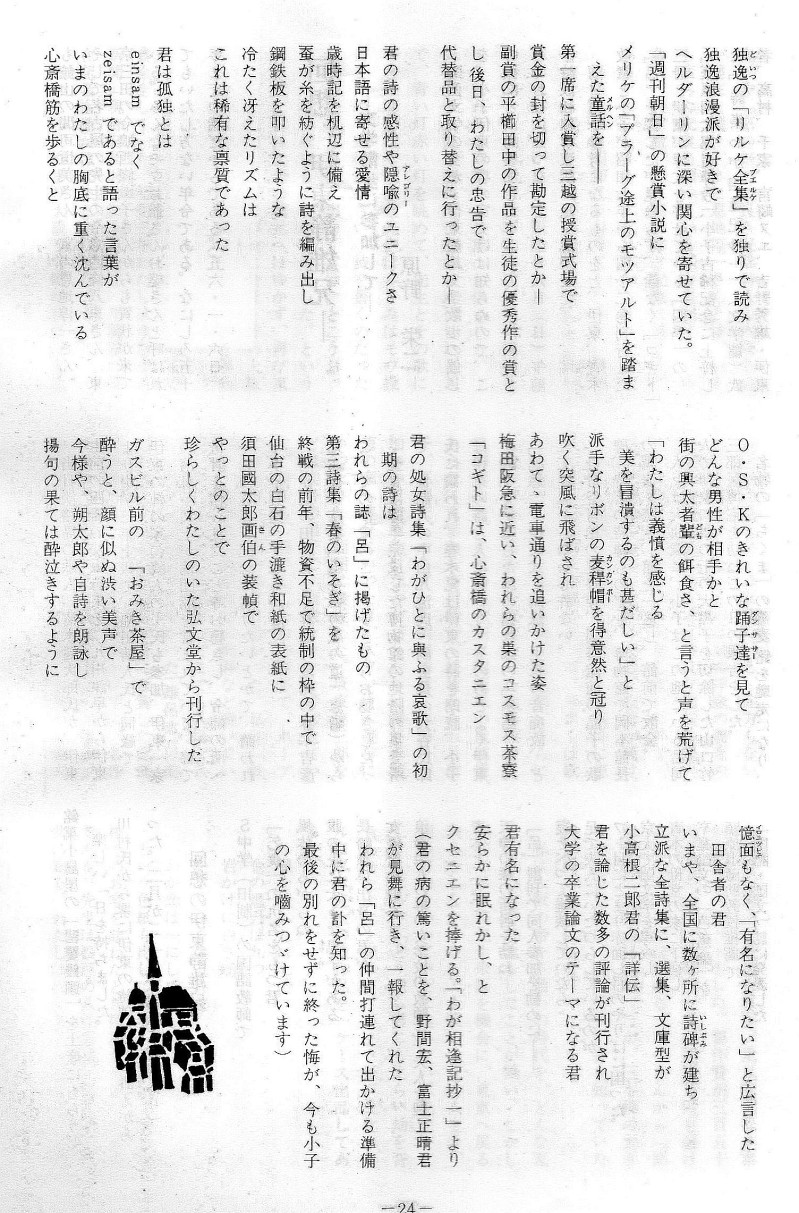 独逸の「リルケ全集」を独りで読み
独逸浪漫派が好きで
ヘルダーリンに深い関心を寄せていた。
「週刊朝日」の懸賞小説に
メリケの「プラーグ途上のモツアルト」を踏ま
えた童話を――
第一席に入賞し三越の授賞式場で
賞金の封を切って勘定したとか―
副賞の平櫛田中の作品を生徒の優秀作の賞と
し後日、わたしの忠告で
代替品と取り替えに行ったとか―
君の詩の感性や隠喩のユニークさ
日本語に寄せる愛情
歳時記を机辺に備え
蚕が糸を紡ぐように詩を編み出し
鋼鉄板を叩いたような
冷たく冴えたリズムは
これは稀有な禀質であった
君は孤独とは
einsam でなく
zeisam であると語った言葉が
いまのわたしの胸底に重く沈んでいる
心斎橋筋を歩るくと
O・S・Kのきれいな踊子達を見て
どんな男性が相手かと
街の興太者輩の餌食さ、と言うと声を荒げて
「わたしは義憤を感じる
美を冒瀆するのも甚だしい」と
派手なリボンの麦稈帽を得意然と冠り
吹く突風に飛ばされ
あわてゝ電車通りを追いかけた姿
梅田阪急に近い、われらの巣のコスモス茶寮
「コギト」は、心斎橋のカスタニエン
君の処女詩集「わがひとに與ふる哀歌」の初
期の詩は
われらの誌「呂」に掲げたもの
第三詩集「春のいそぎ」を
終戦の前年、物資不足で統制の枠の中で
仙台の白石の手漉き和紙の表紙に
須田國太郎画伯の装幀で
やっとのことで
珍らしくわたしのいた弘文堂から刊行した
ガスビル前の「おみき茶屋」で
酔うと、顔に似ぬ渋い美声で
今様や、朔太郎や自詩を朗詠し
揚句の果ては酔泣きするように
憶面もなく、「有名になりたい」と広言した
田舎者の君
いまや、全国に数ヶ所に詩碑が建ち
立派な全詩集に、選集、文庫型が
小高根二郎君の「詳伝」
君を論じた数多の評論が刊行され
大学の卒業論文のテーマになる君
君有名になった
安らかに眠れかし、と
クセニエンを捧げる。「わが相逢記抄一」より
（君の病の篤いことを、野間宏、富士正晴君
が見舞に行き、一報してくれた
われら「呂」の仲間打連れて出かける準備
中に君の訃を知った。
最後の別れをせずに終った悔が、今も小子
の心を嚙みつゞけています）
―24―